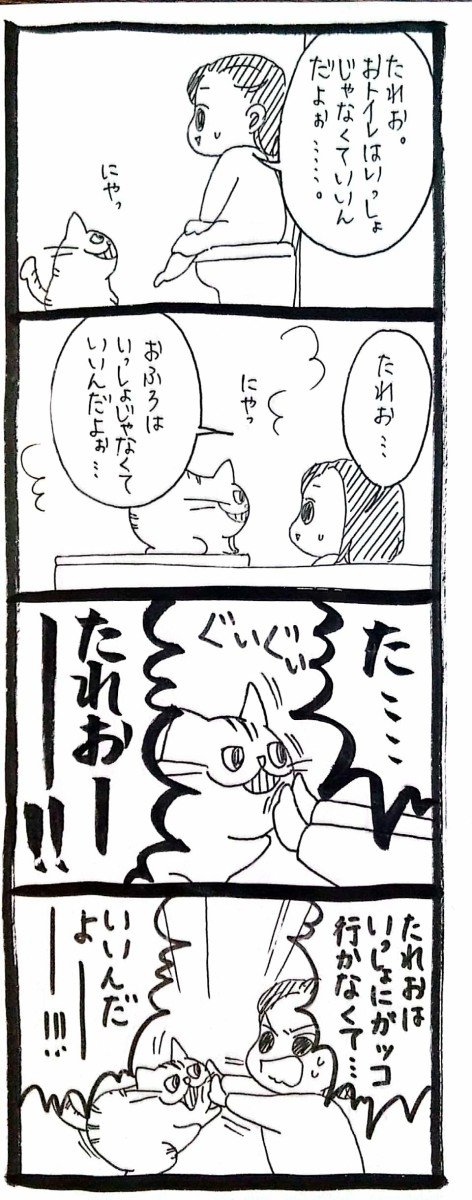 たれお。
おトイレはいっしょ
じゃなくていいん
だよぉ……。
にゃっ
たれお…
にゃっ
おふろは
いっしょじゃなくて
いいんだよぉ…
た…
ぐいぐい
たれおー
ー!!
たれおは
いっしょにがッコ
行かなくて…
いいんだ
よー
ー!!!